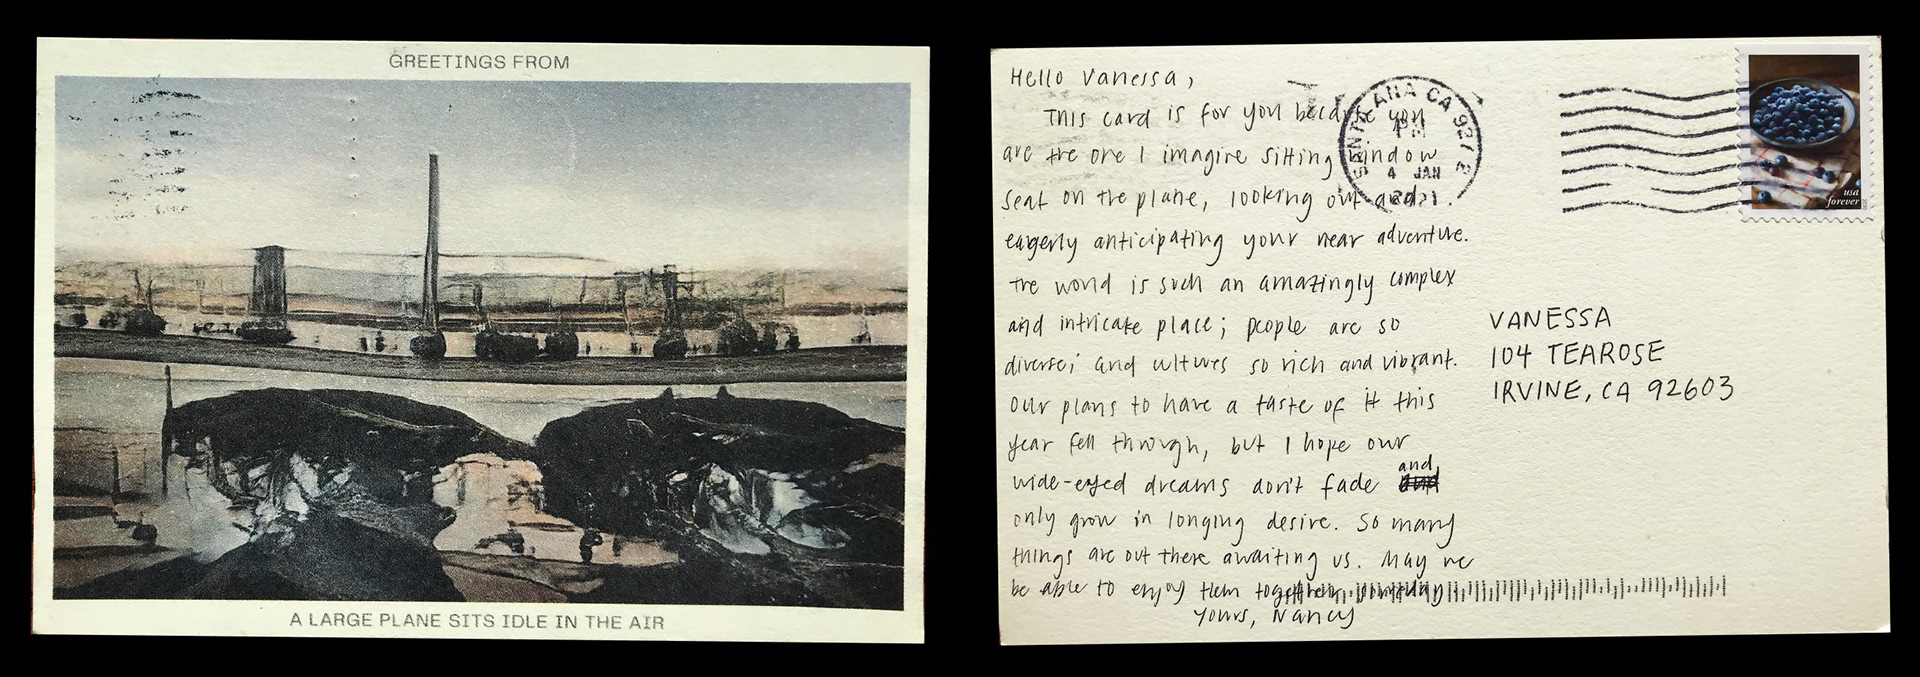 GREETINGS FROM
A LARGE PLANE SITS IDLE IN THE AIR
Hello Vanessa,
This card is for you because you
are the one I imagine sitting window
seat on the plane, looking out and
eagerly anticipating your near adventure.
The world is such an amazingly complex
and intricate place; people are so
diverse; and cultures so rich and vibrant.
Our plans to have a taste of it this
year fell through, but I hope our
wide-eyed dreams don't fade and
only grow in longing desire. So many
things are out there awaiting us. May we
be able to enjoy them together someday
Yours, Nancy
SANTA ANA CA
PM
4 JAN
2021
usa
forever
VANESSA
104 TEAROSE
IRVINE, CA 92603